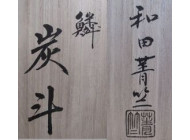 和田菁竺
鱗
炭斗